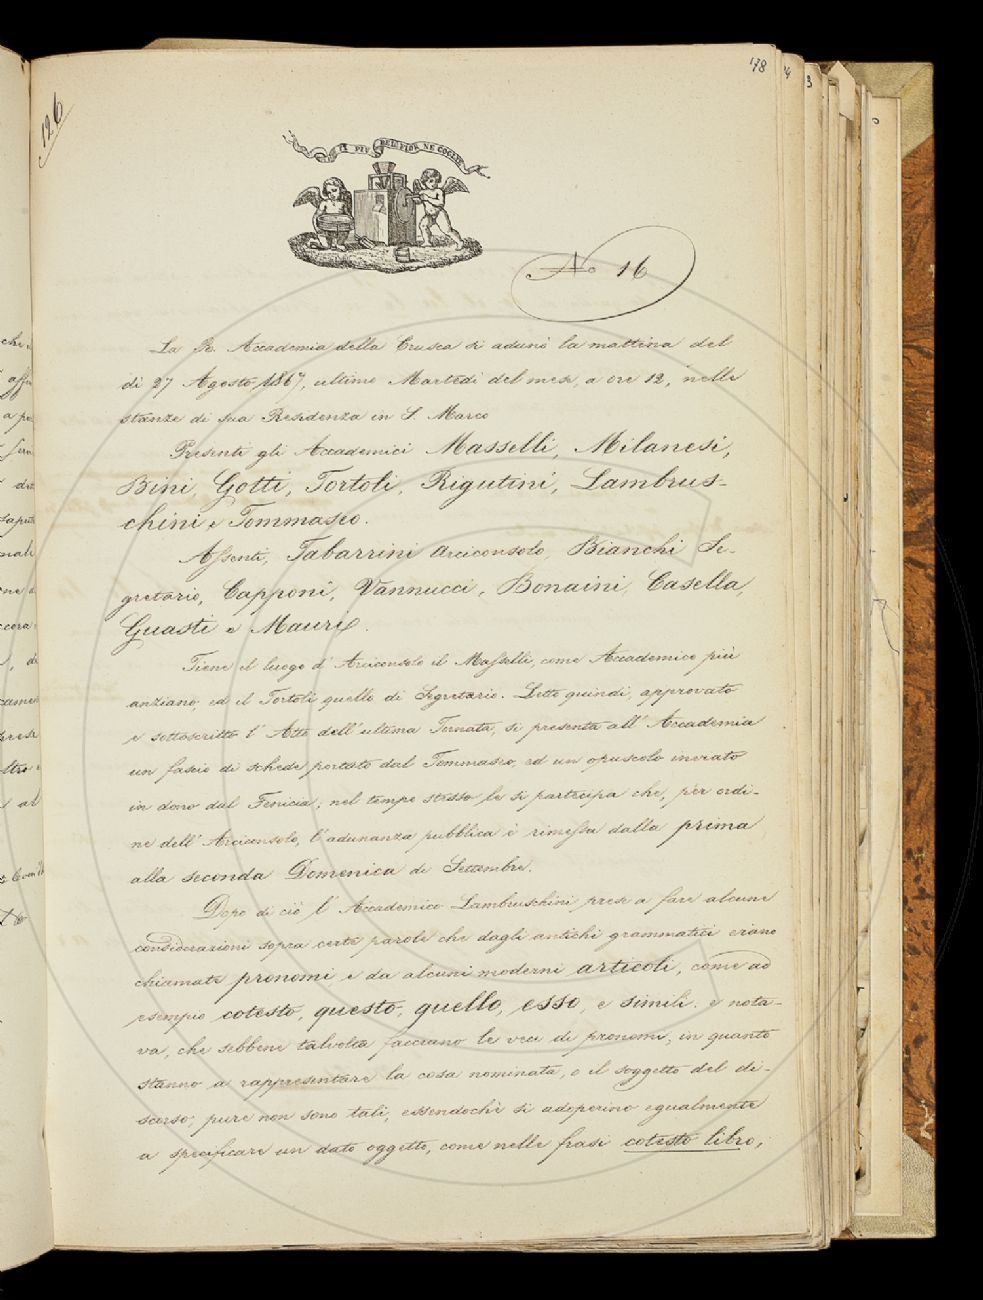 178
126
IL PIÙ BEL FIOR NE COGLIE
No 16
La R. Accademia della Crusca si adunò la mattina del
di 27 Agosto 1867, ultimo Martedì del mese, a ore 12, nelle
stanze di sua Residenza in S. Marco
Presenti gli Accademici Masselli, Milanesi,
Bini, Gotti, Tortoli, Rigutini, Lambrus-
chini e Tommaseo.
Assenti, Tabarrini Arciconsolo, Bianchi Se-
gretario, Capponi, Vannucci, Bonaini, Casella,
Guasti e Mauri.
Tiene il luogo d'Arciconsolo il Masselli, come Accademico più
anziano, ed il Tortoli quello di Segretario. Letto quindi, approvato
e sottoscritto l'Atto dell'ultima Tornata, si presenta all'Accademia
un fascio di schede portato dal Tommaseo, ed un opuscolo inviato
in dono dal Fenicia; nel tempo stesso le si partecipa che, per ordi-
ne dell'Arciconsolo, l'adunanza pubblica è rimessa dalla prima
alla seconda Domenica di Settembre.
Dopo di ciò l'Accademico Lambruschini prese a fare alcune
considerazioni sopra certe parole che dagli antichi grammatici erano
chiamate pronomi, e da alcuni moderni articoli, come ad
esempio cotesto, questo, quello, esso, e simili: e nota-
va, che sebbene talvolta facciano le veci di pronomi, in quanto
stanno a rappresentare la cosa nominata, o il soggetto del di-
scorso, pure non sono tali, essendochè si adoperino egualmente
a specificare un dato oggetto, come nelle frasi cotesto libro,